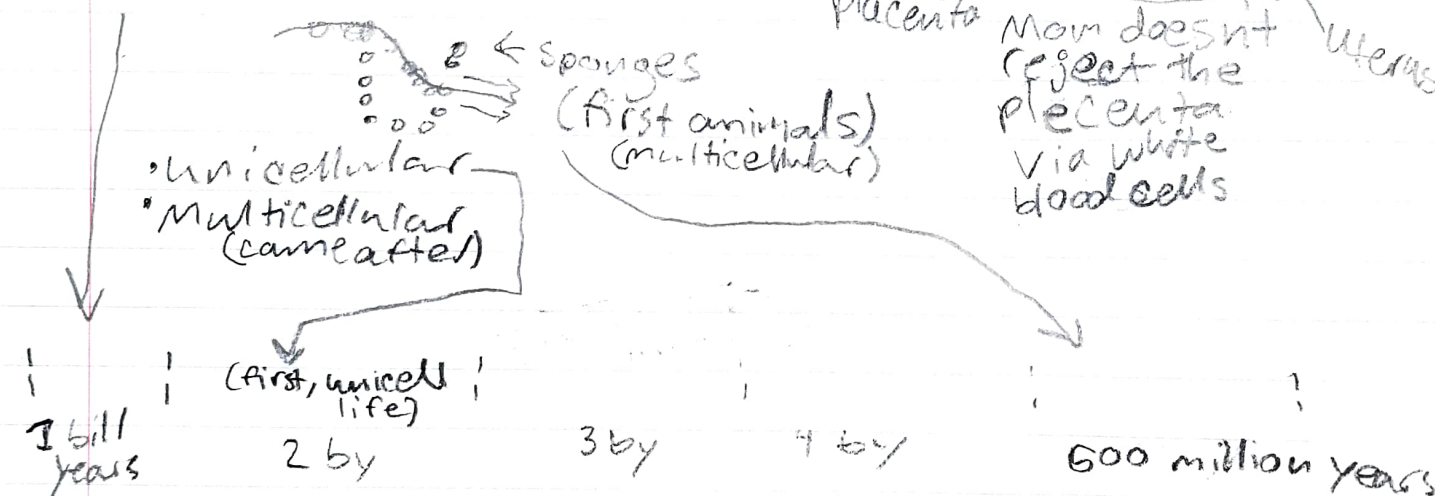 placenta
Mom doesn't
reject the
plecenta
via white
blood cells
uterus
← sponges
(first animals)
(multicellular)
• unicellular
• Multicellular
(came after)
(first, unicell
life)
1 bill
years
2 by
3 by
4 by
600 million years